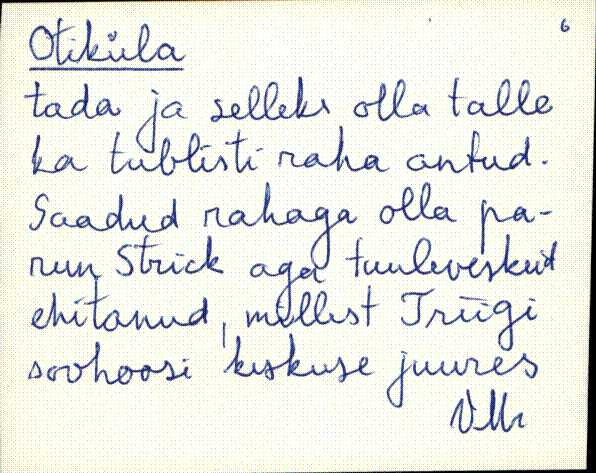 6
Otiküla
tada ja selleks olla talle
ka tublisti raha antud.
Saadud rahaga olla pa-
run Strick aga tuuleveskeid
ehitanud, millest Triigi
sovhoosi keskuse juures